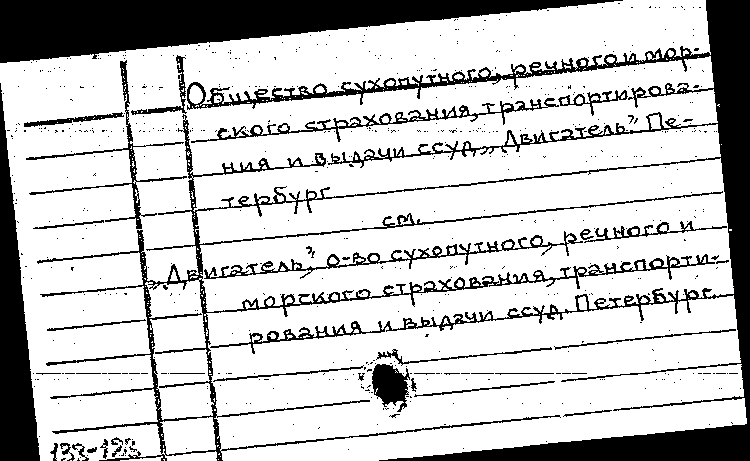 Общество сухопутного, речного и мор-
ского страхования, транспортирова-
ния и выдачи ссуд „Двигатель” Пе-
тербург
см.
„Двигатель”, о-во сухопутного, речного и
морского страхования, транспорти-
рования и выдачи ссуд. Петербург.